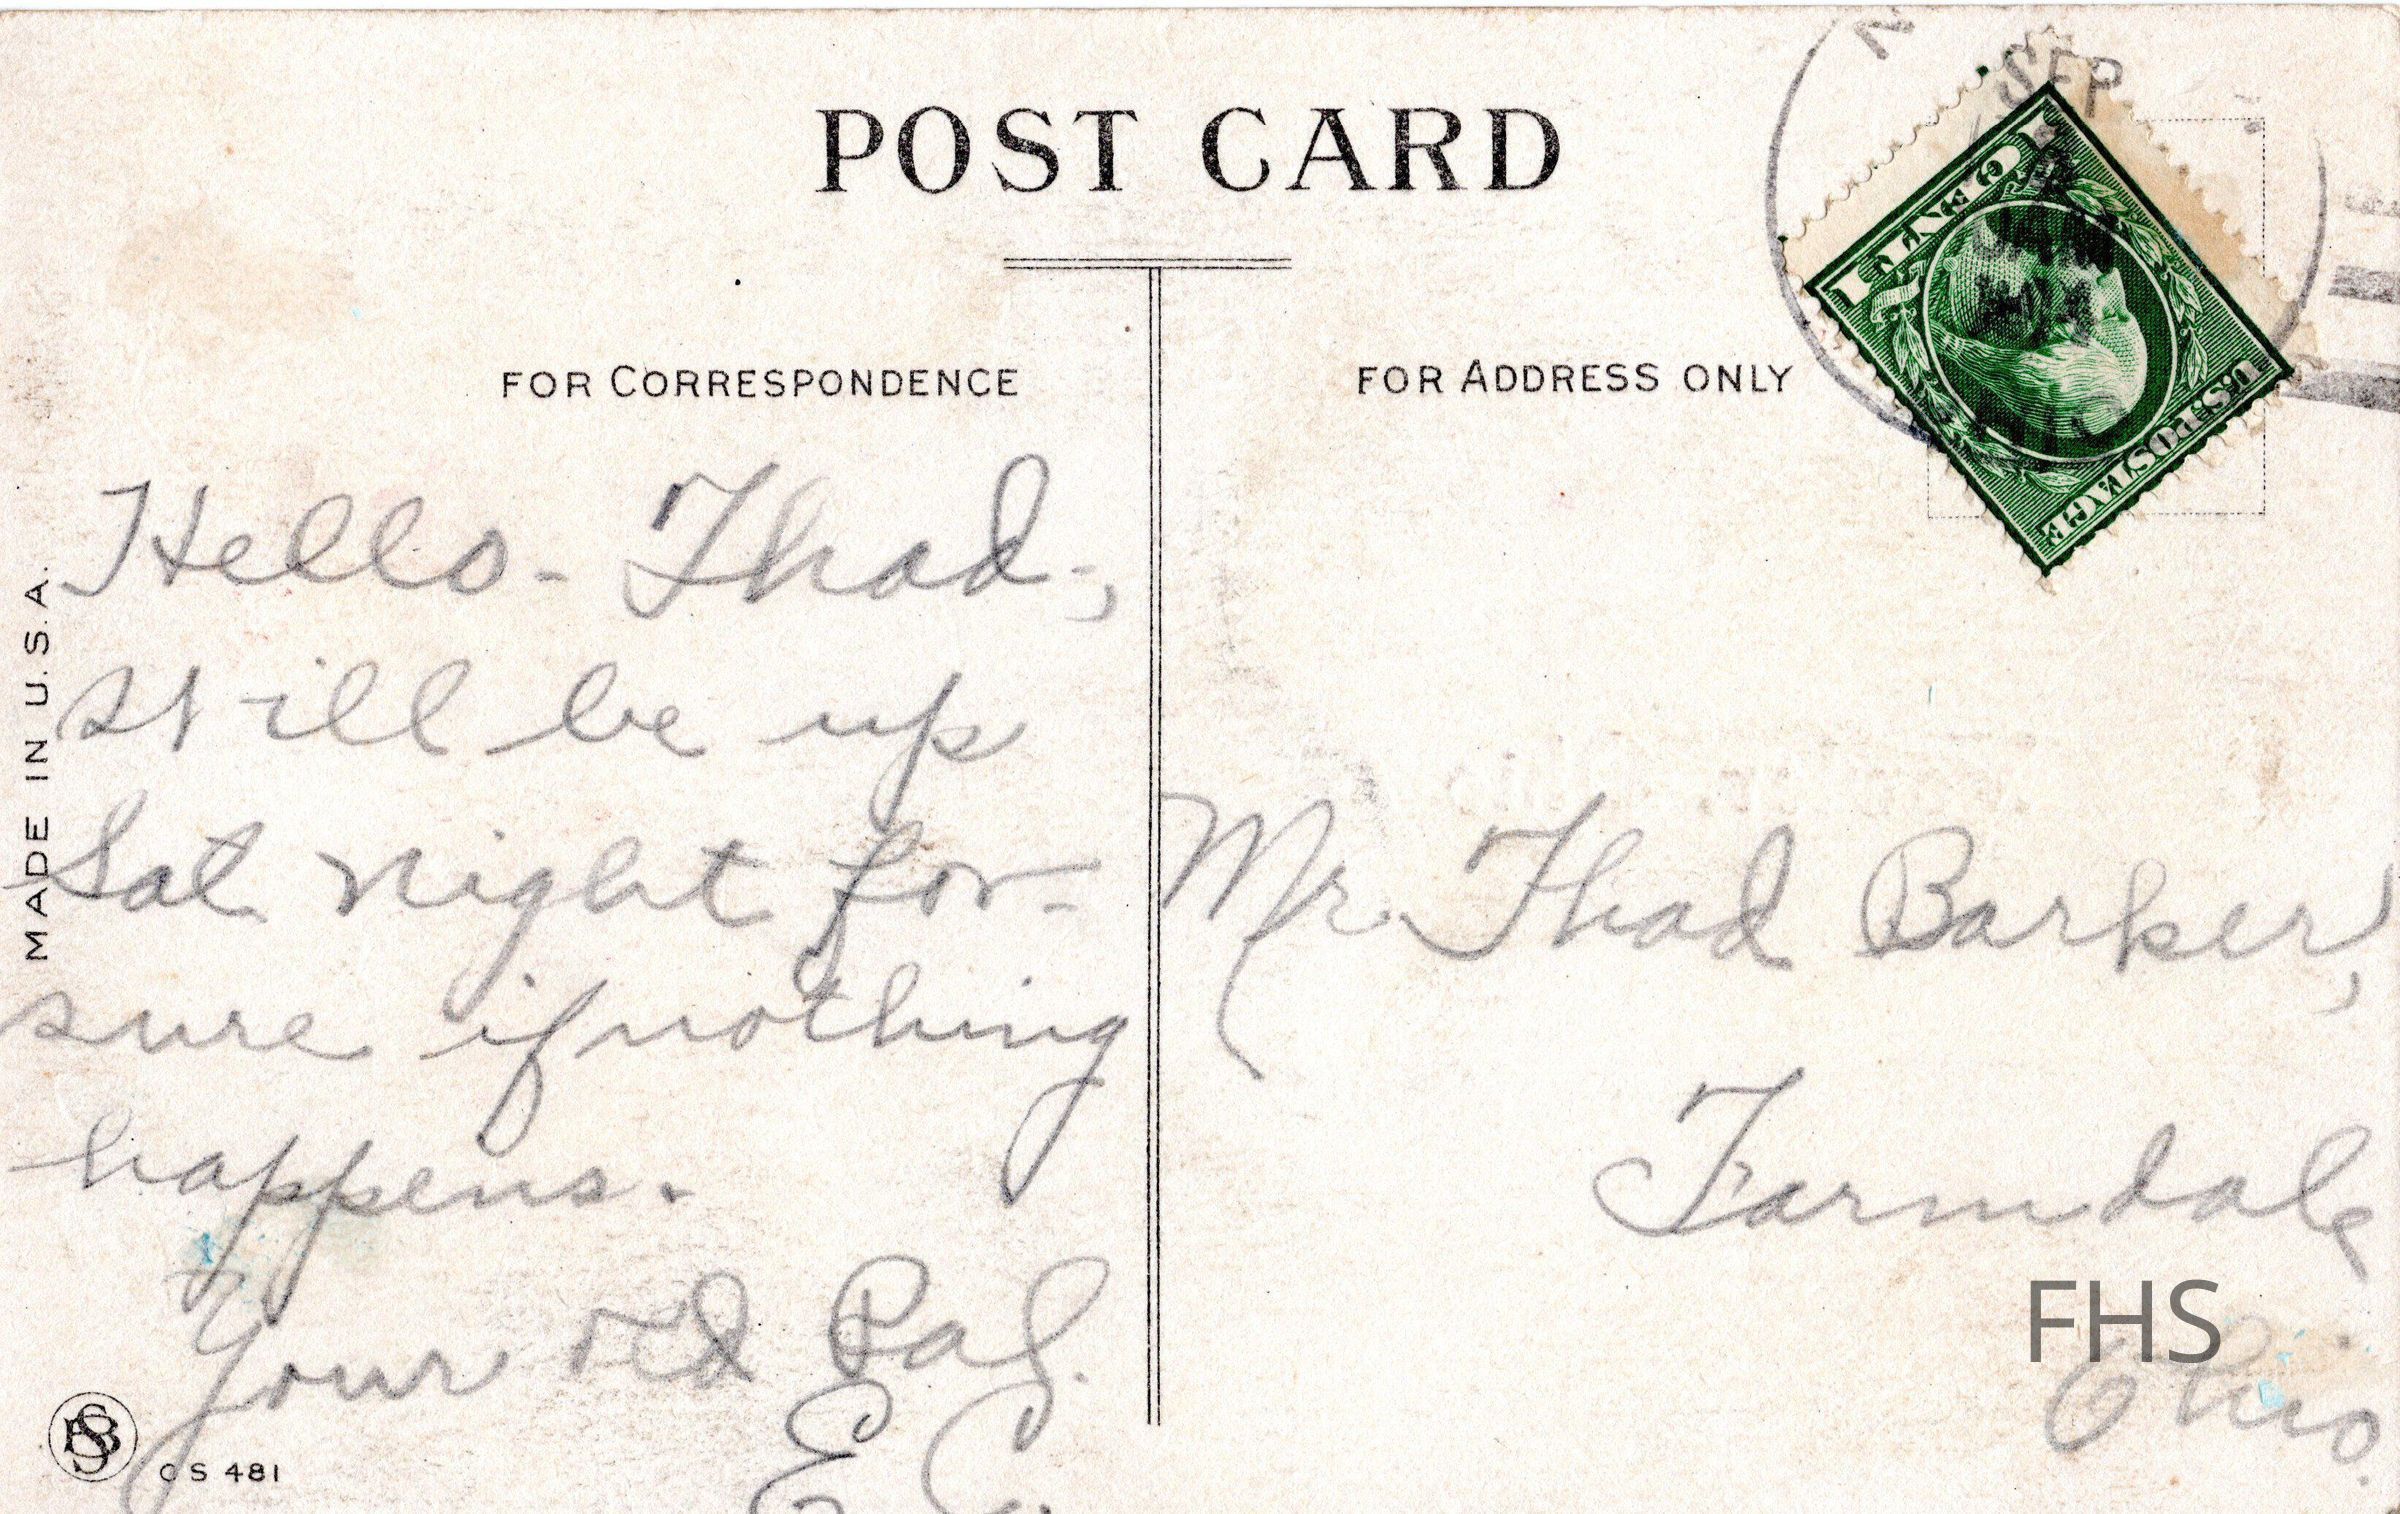 POST CARD
FOR CORRESPONDENCE
FOR ADDRESS ONLY
SEP
ONE
U.S. POSTAGE
MADE IN U.S.A.
Hello - Thad -,
Will be up
Sat night for -
sure if nothing
happens.
Your old Pal.
E C.
Mr. Thad Barker,
Farmdale
Ohio.
FHS
CS 481